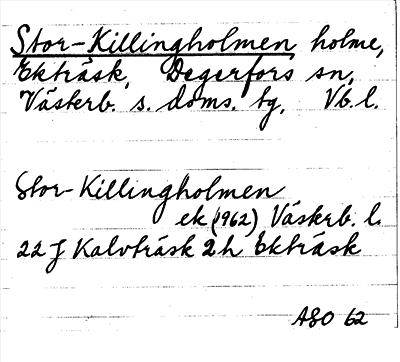 Stor-Killingholmen holme,
Ekträsk, Degerfors sn,
Västerb. s. doms. tg, Vb. l.
Stor-Killingholmen
ek (1962) Västerb. l.
22 J Kalvträsk 2h Ekträsk
ASO 62